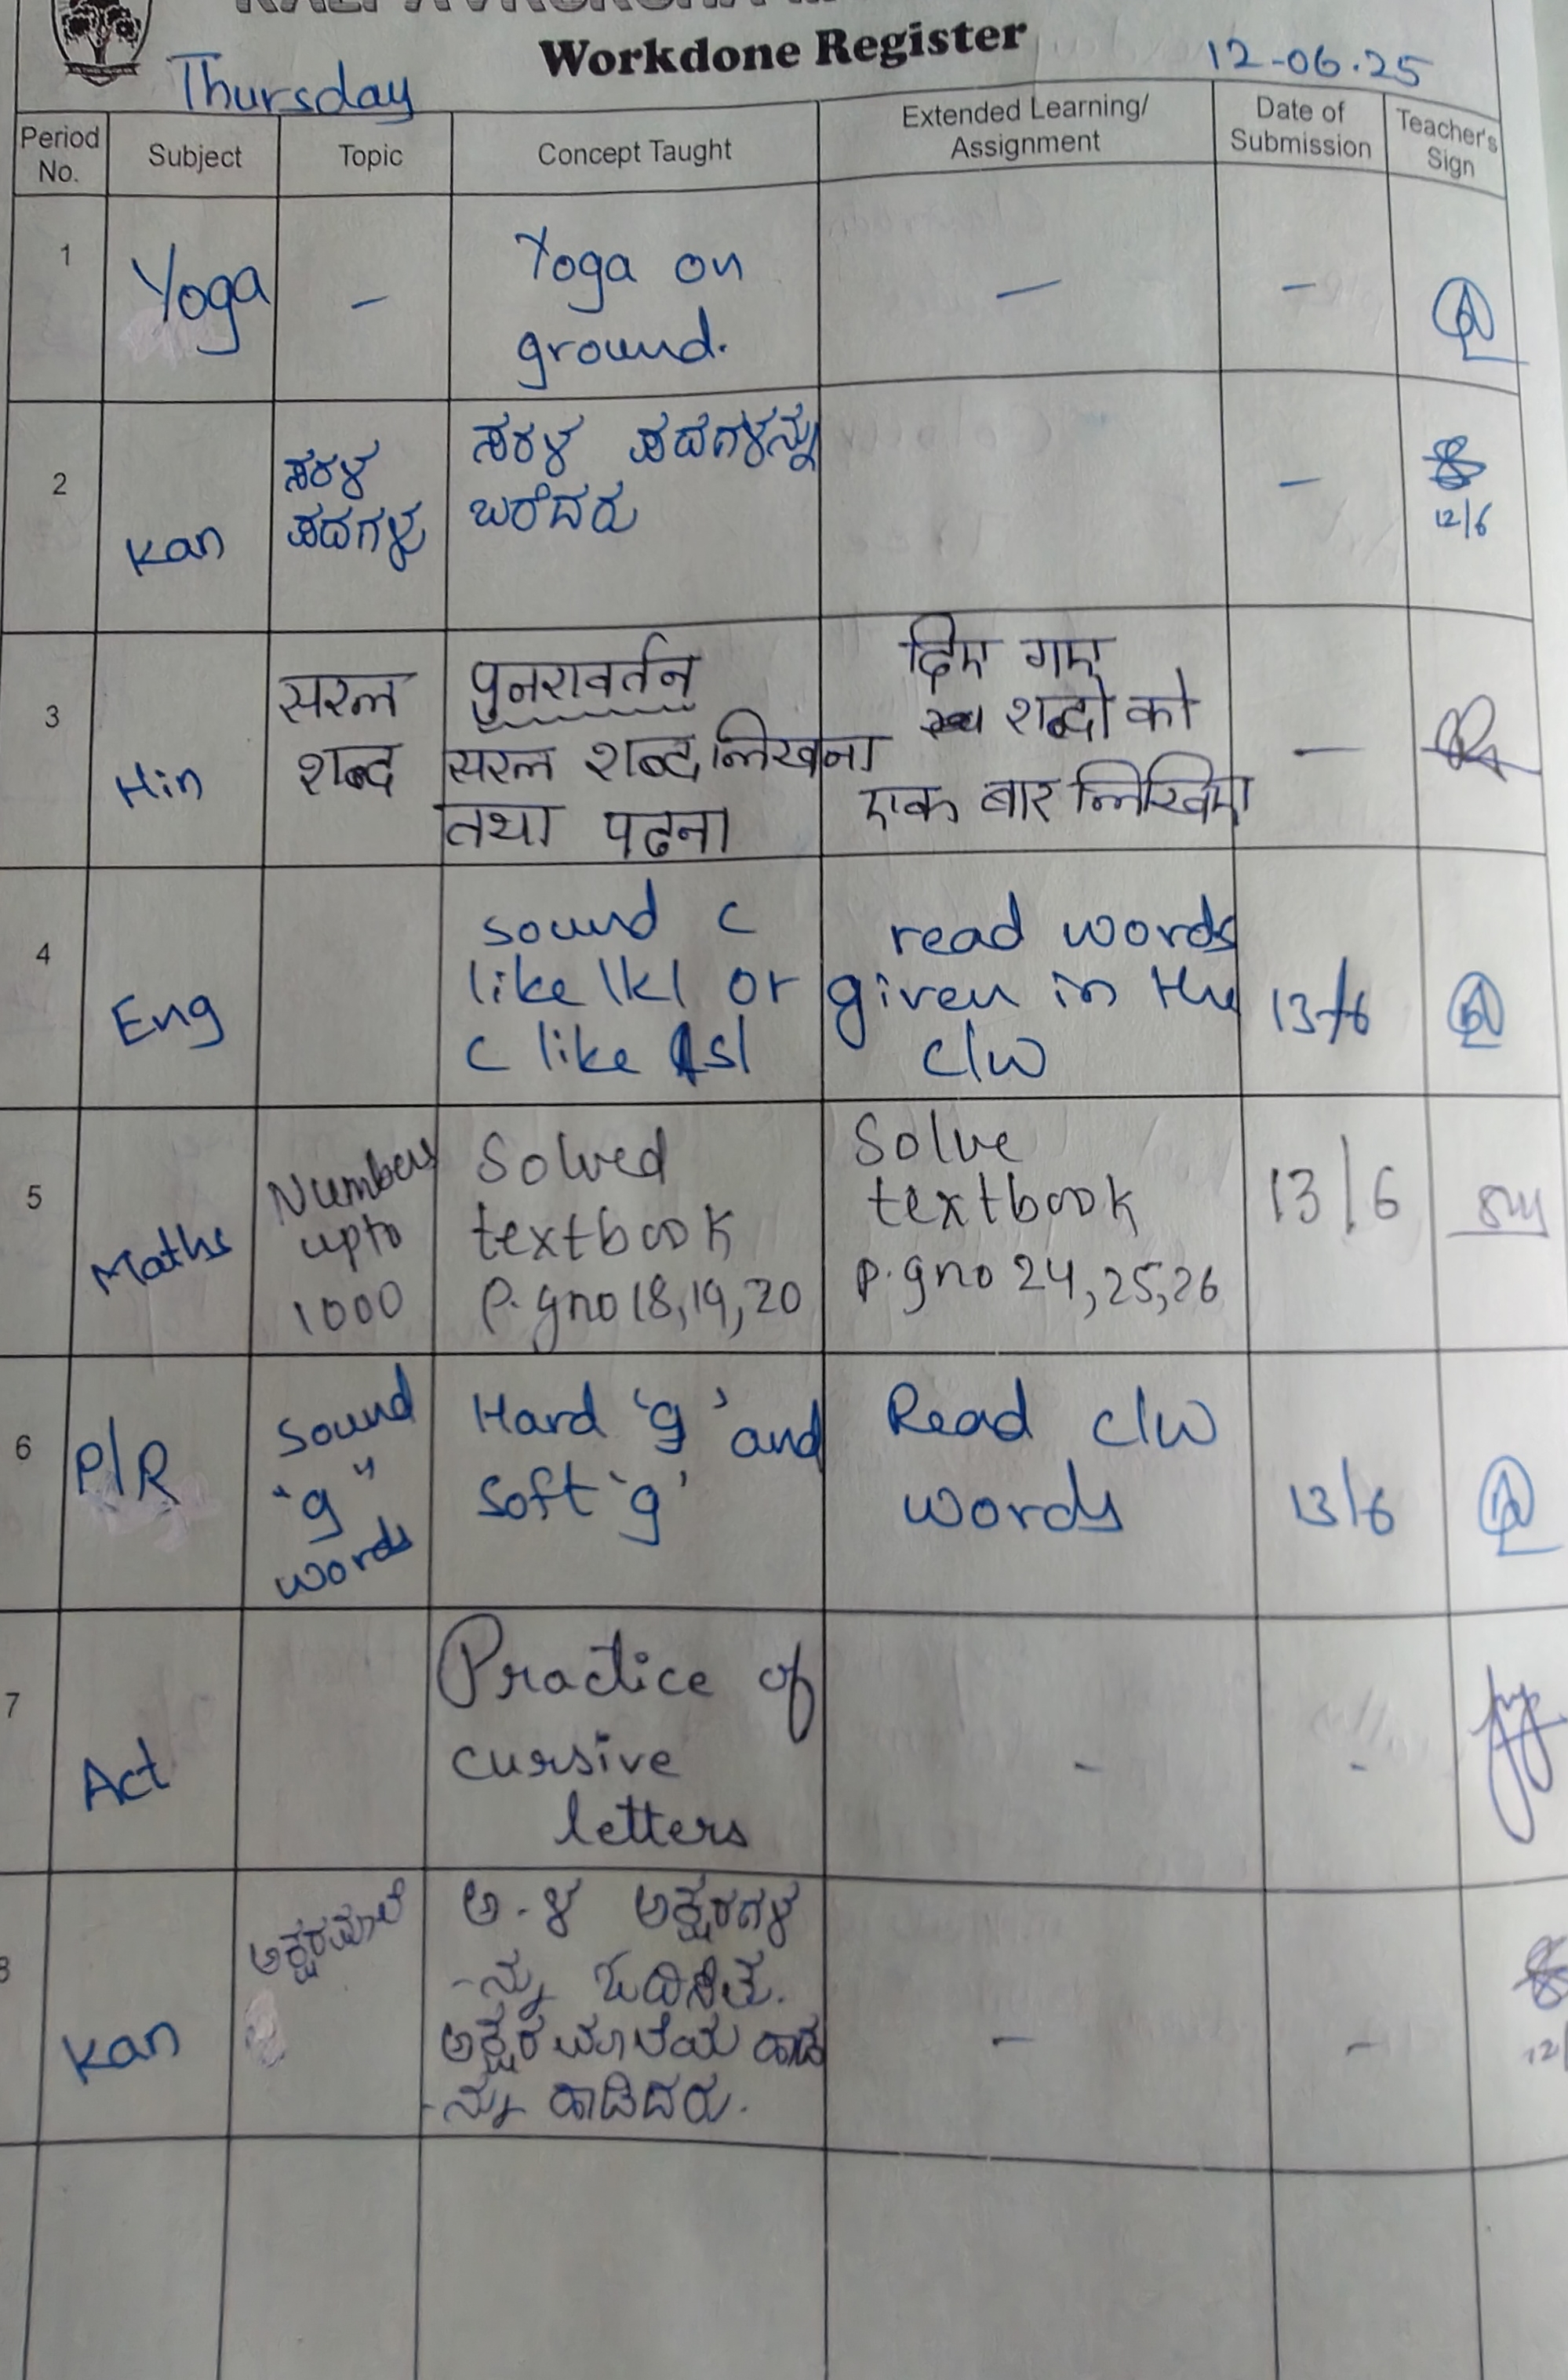 Workdone Register
Thursday 12-06.25
Period No. Subject Topic Concept Taught Extended Learning/ Assignment Date of Submission Teacher's Sign
1 Yoga - Yoga on ground. - -
2 Kan ಸರಳ ಪದಗಳು ಸರಳ ಪದಗಳನ್ನು ಬರೆದರು - 12/6
3 Hin सरल शब्द पुनरावर्तन सरल शब्द लिखना तथा पढना दिए गए शब्दो को एक बार लिखिए -
4 Eng sound c like /k/ or c like /s/ read words given in the c/w 13/6
5 Maths Numbers upto 1000 Solved textbook P.gno 18,19,20 Solve textbook P.gno 24,25,26 13/6
6 P/R Sound "g" words Hard 'g' and soft 'g' Read c/w words 13/6
7 Act Practice of cursive letters - -
8 Kan ಅಕ್ಷರಮಾಲೆ ಅ-ಳ ಅಕ್ಷರಗಳ -ನ್ನು ಅಕ್ಷರಮಾಲೆಯ ಹಾಡ -ನ್ನು ಹಾಡಿದರು. - - 12/